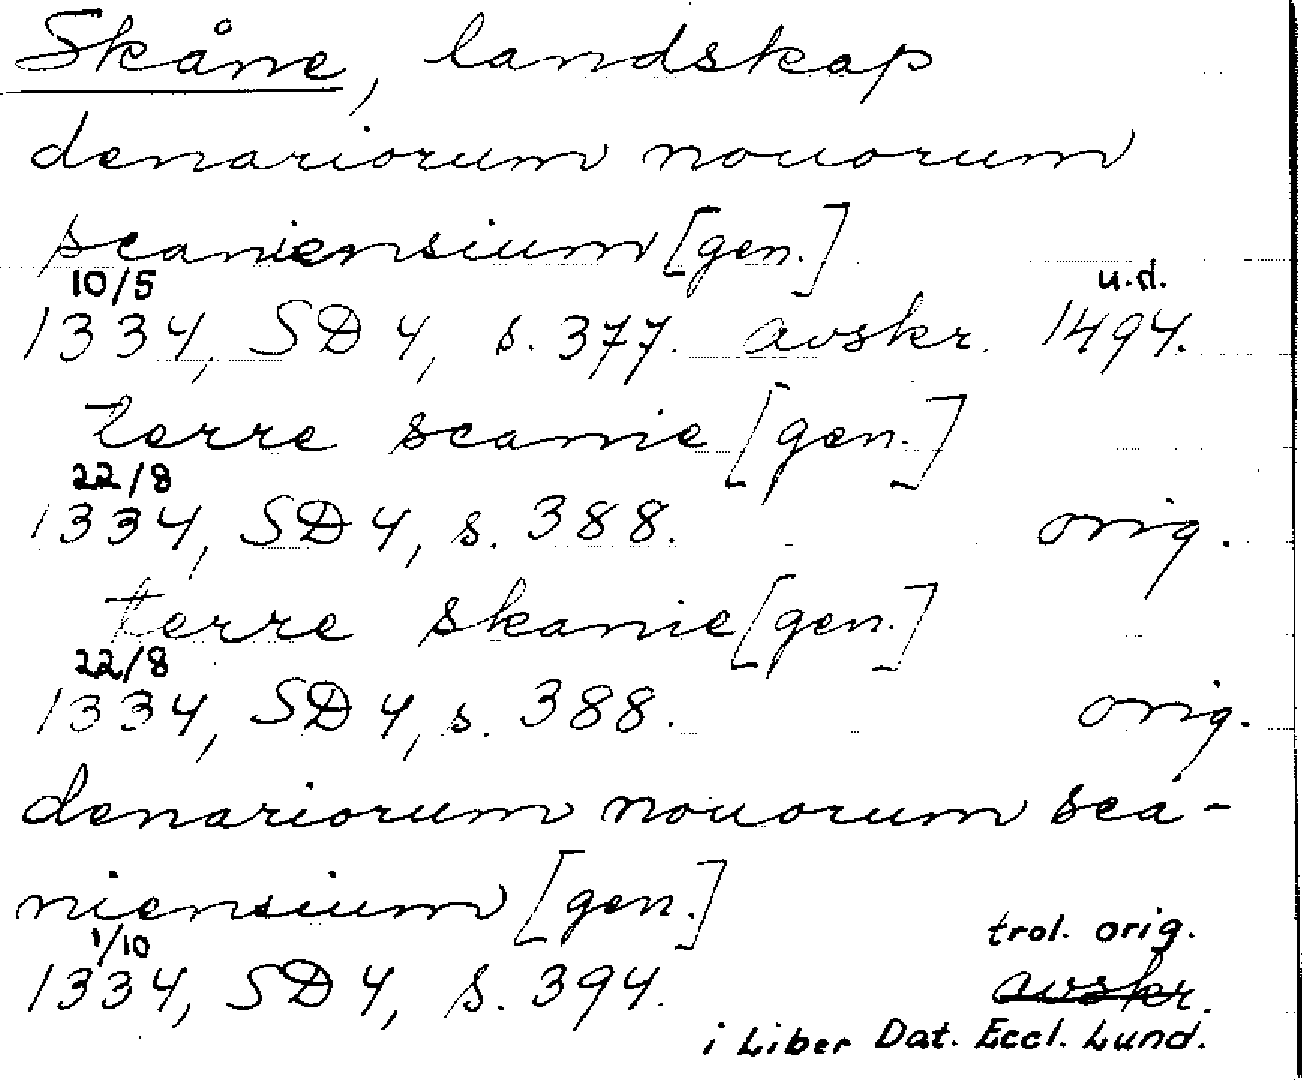 Skåne, landskap
denariorum nouorum
scaniensium [gen.]
10/5 u.d.
1334, SD 4, s. 377. avskr. 1494.
terre scanie [gen.]
22/8
1334, SD 4, s. 388. orig.
terre skanie [gen.]
22/8
1334, SD 4, s. 388. orig.
denariorum nouorum sca-
niensium [gen.]
1/10 trol. orig.
1334, SD 4, s. 394. avskr.
i Liber Dat. Eccl. Lund.